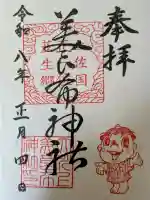 奉拝
土佐国
韮生郷
美良布神社
令和八年正月四日